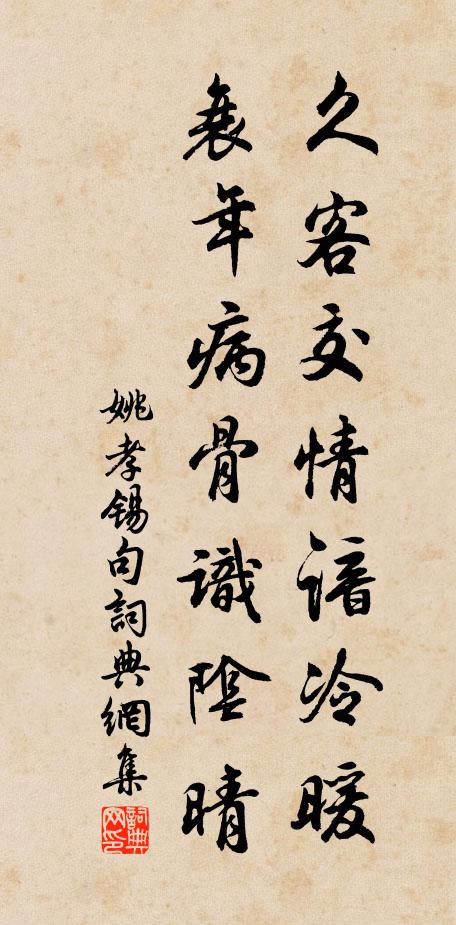 久客交情諳冷暖
衰年病骨識陰晴
姚孝錫句詞典網集
詞典网印